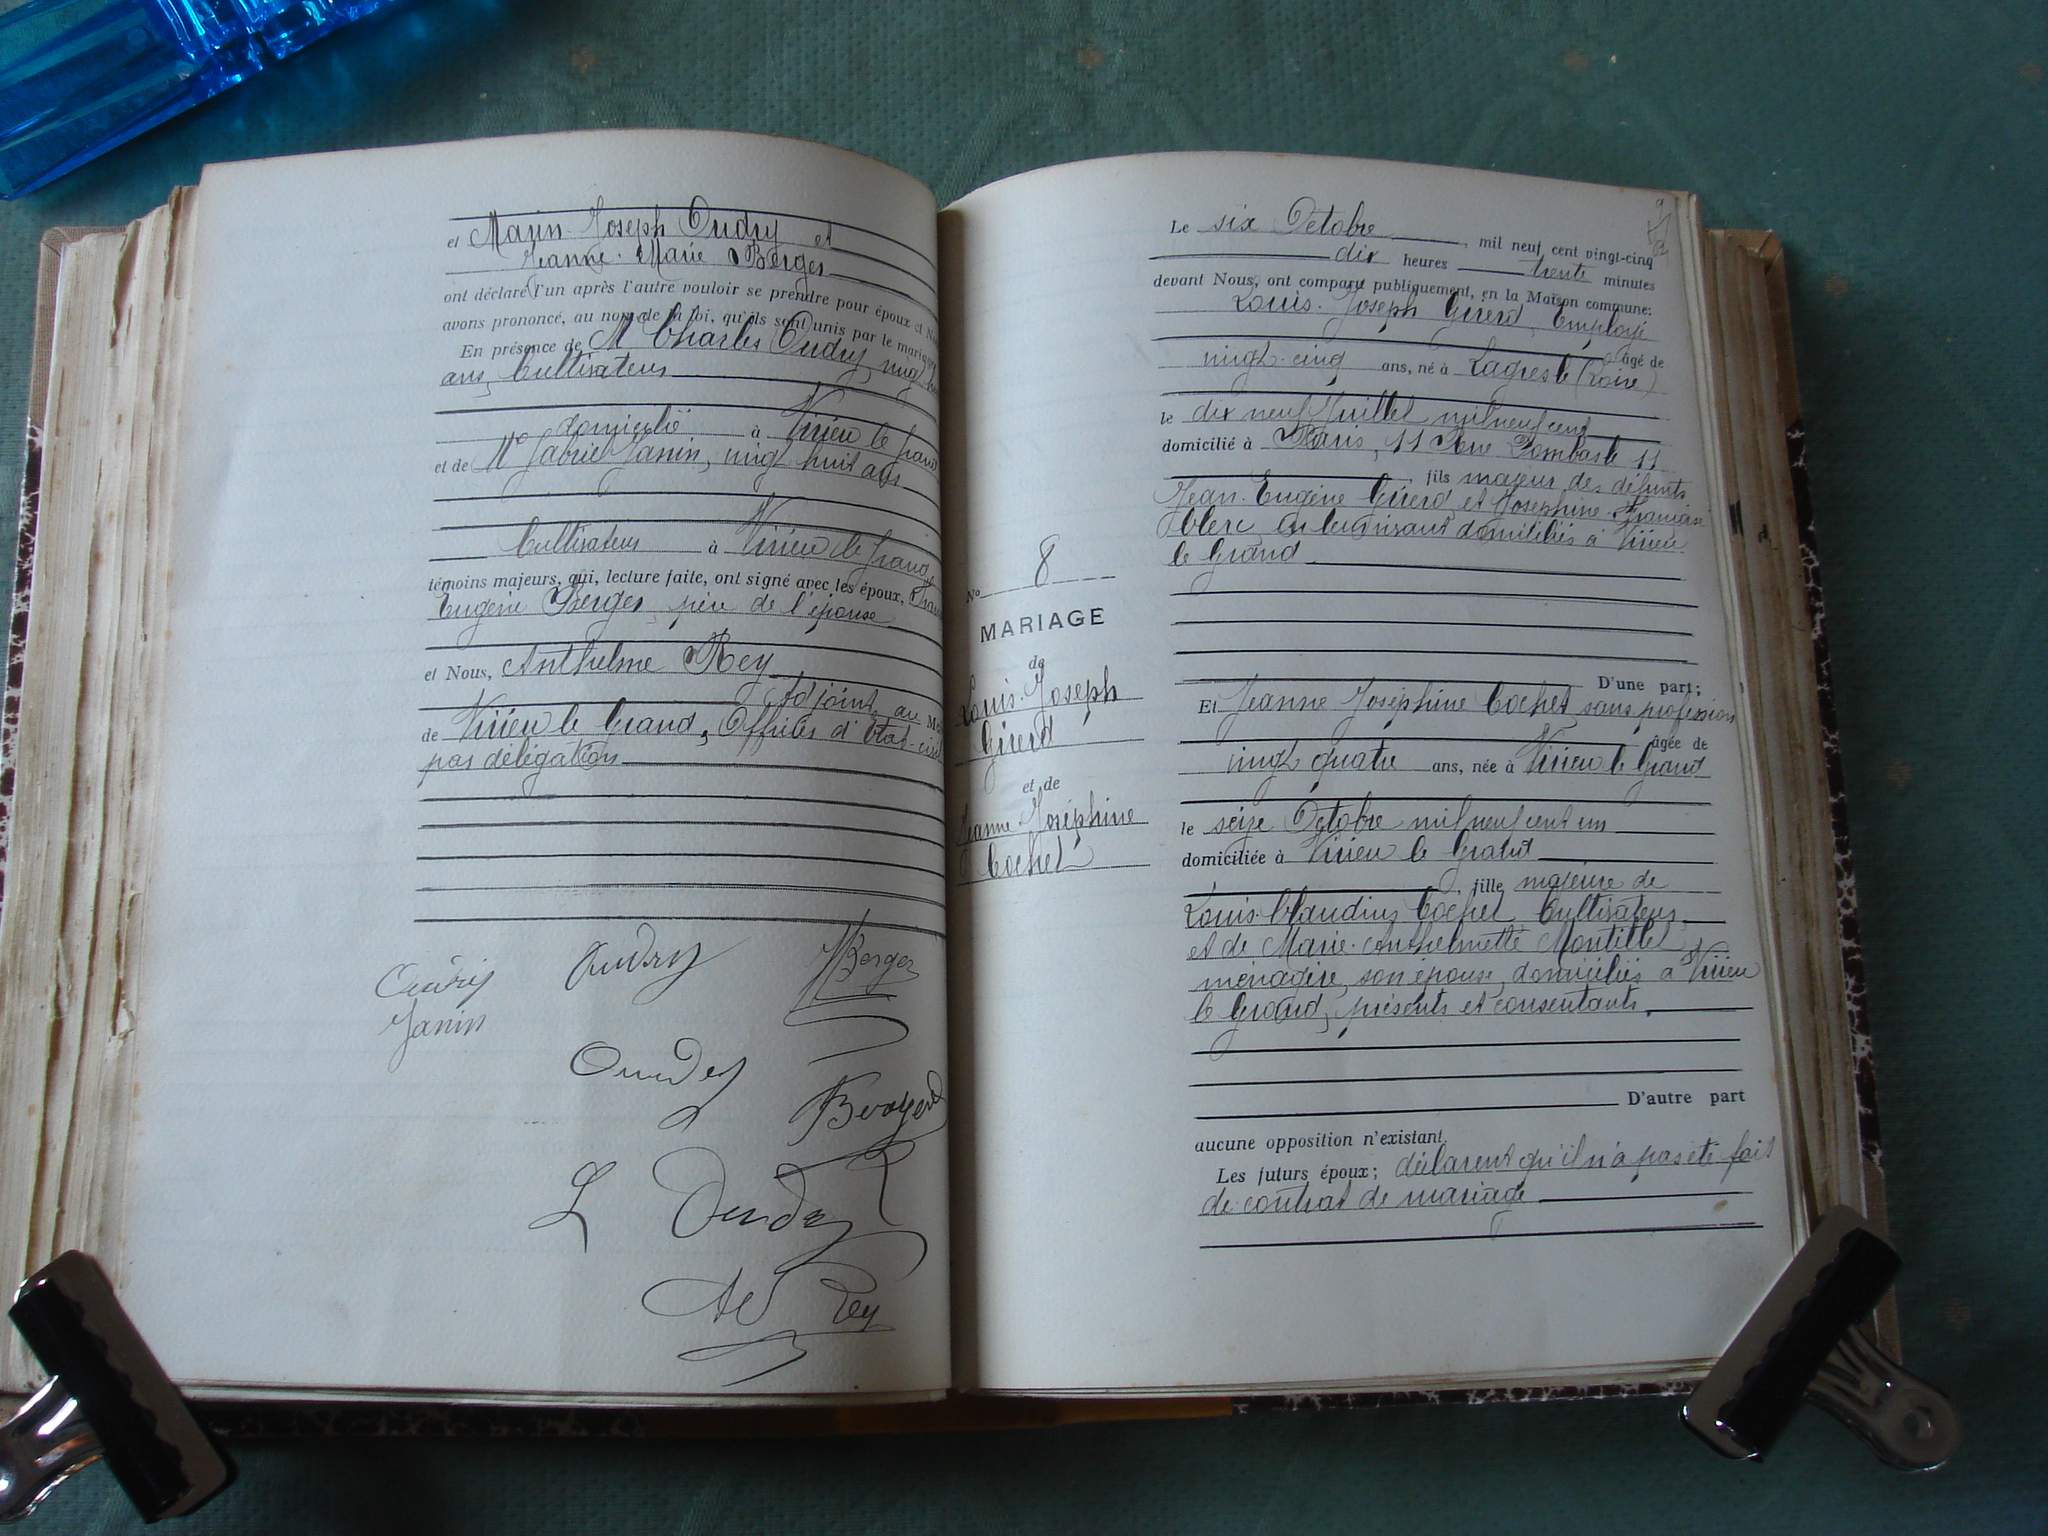 et Marin-Joseph Oudry et
Jeanne-Marie Berger
ont déclaré l'un après l'autre vouloir se prendre pour époux et
avons prononcé, au nom de la loi, qu'ils sont unis par le
En présence de Mr Charles Oudry, vingt
ans, Cultivateur
domicilié à Virieu le Grand
et de Mr Gabriel Janin, vingt huit ans
Cultivateur à Virieu le Grand
témoins majeurs, qui, lecture faite, ont signé avec les époux,
Eugène Berger père de l'épouse
et Nous, Anthelme Rey
Adjoint au
de Virieu le Grand, Officier d'Etat-civil
par délégation
Oudry Berger
Janin
L Oudry
Rey
Le six Octobre, mil neuf cent vingt-cinq
dix heures trente minutes
devant Nous, ont comparu publiquement, en la Maison commune:
Louis-Joseph Girerd, Employé
âgé de
vingt-cinq ans, né à Lagresle (Loire)
le dix neuf Juillet mil neuf cent
domicilié à Paris, 11 Rue Dombasle 11
, fils majeur des défunts
Jean-Eugène Girerd et Josephine-
Clerc, en leur vivant domiciliés à Virieu
le Grand
N° 8
MARIAGE
de
Louis-Joseph
Girerd
et de
Jeanne Joséphine
Cochet
D'une part;
Et Jeanne Joséphine Cochet, sans profession
âgée de
vingt quatre ans, née à Virieu le Grand
le seize Octobre mil neuf cent un
domiciliée à Virieu le Grand
, fille majeure de
Louis-Claudius Cochet, Cultivateur
et de Marie-Anthelmette Montillet
ménagère, son épouse, domiciliés à Virieu
le Grand, présents et consentants,
D'autre part
aucune opposition n'existant.
Les futurs époux; déclarent qu'il n'a pas été fait
de contrat de mariage